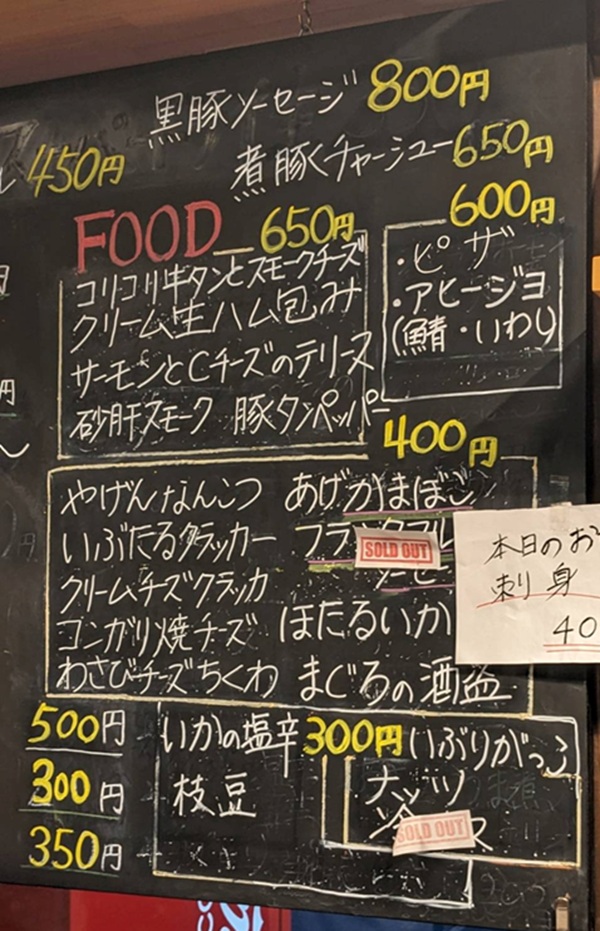 黒豚ソーセージ 800円
450円
煮豚くチャーシュー 650円
FOOD 650円
コリコリ牛タンとスモークチーズ
クリーム生ハム包み
サーモンとCチーズのテリーヌ
砂肝スモーク 豚タンペッパー
600円
・ピザ
・アヒージョ
(鯖・いわし)
400円
やげんなんこつ あげかまぼこ
いぶたるクラッカー
SOLD OUT
クリームチズクラッカ
コンガリ焼チーズ ほたるいか
わさびチーズちくわ まぐろの酒盗
本日のお
刺り身
40
500円
300円
350円
いかの塩辛 300円 いぶりがっこ
枝豆 ナッツ
SOLD OUT